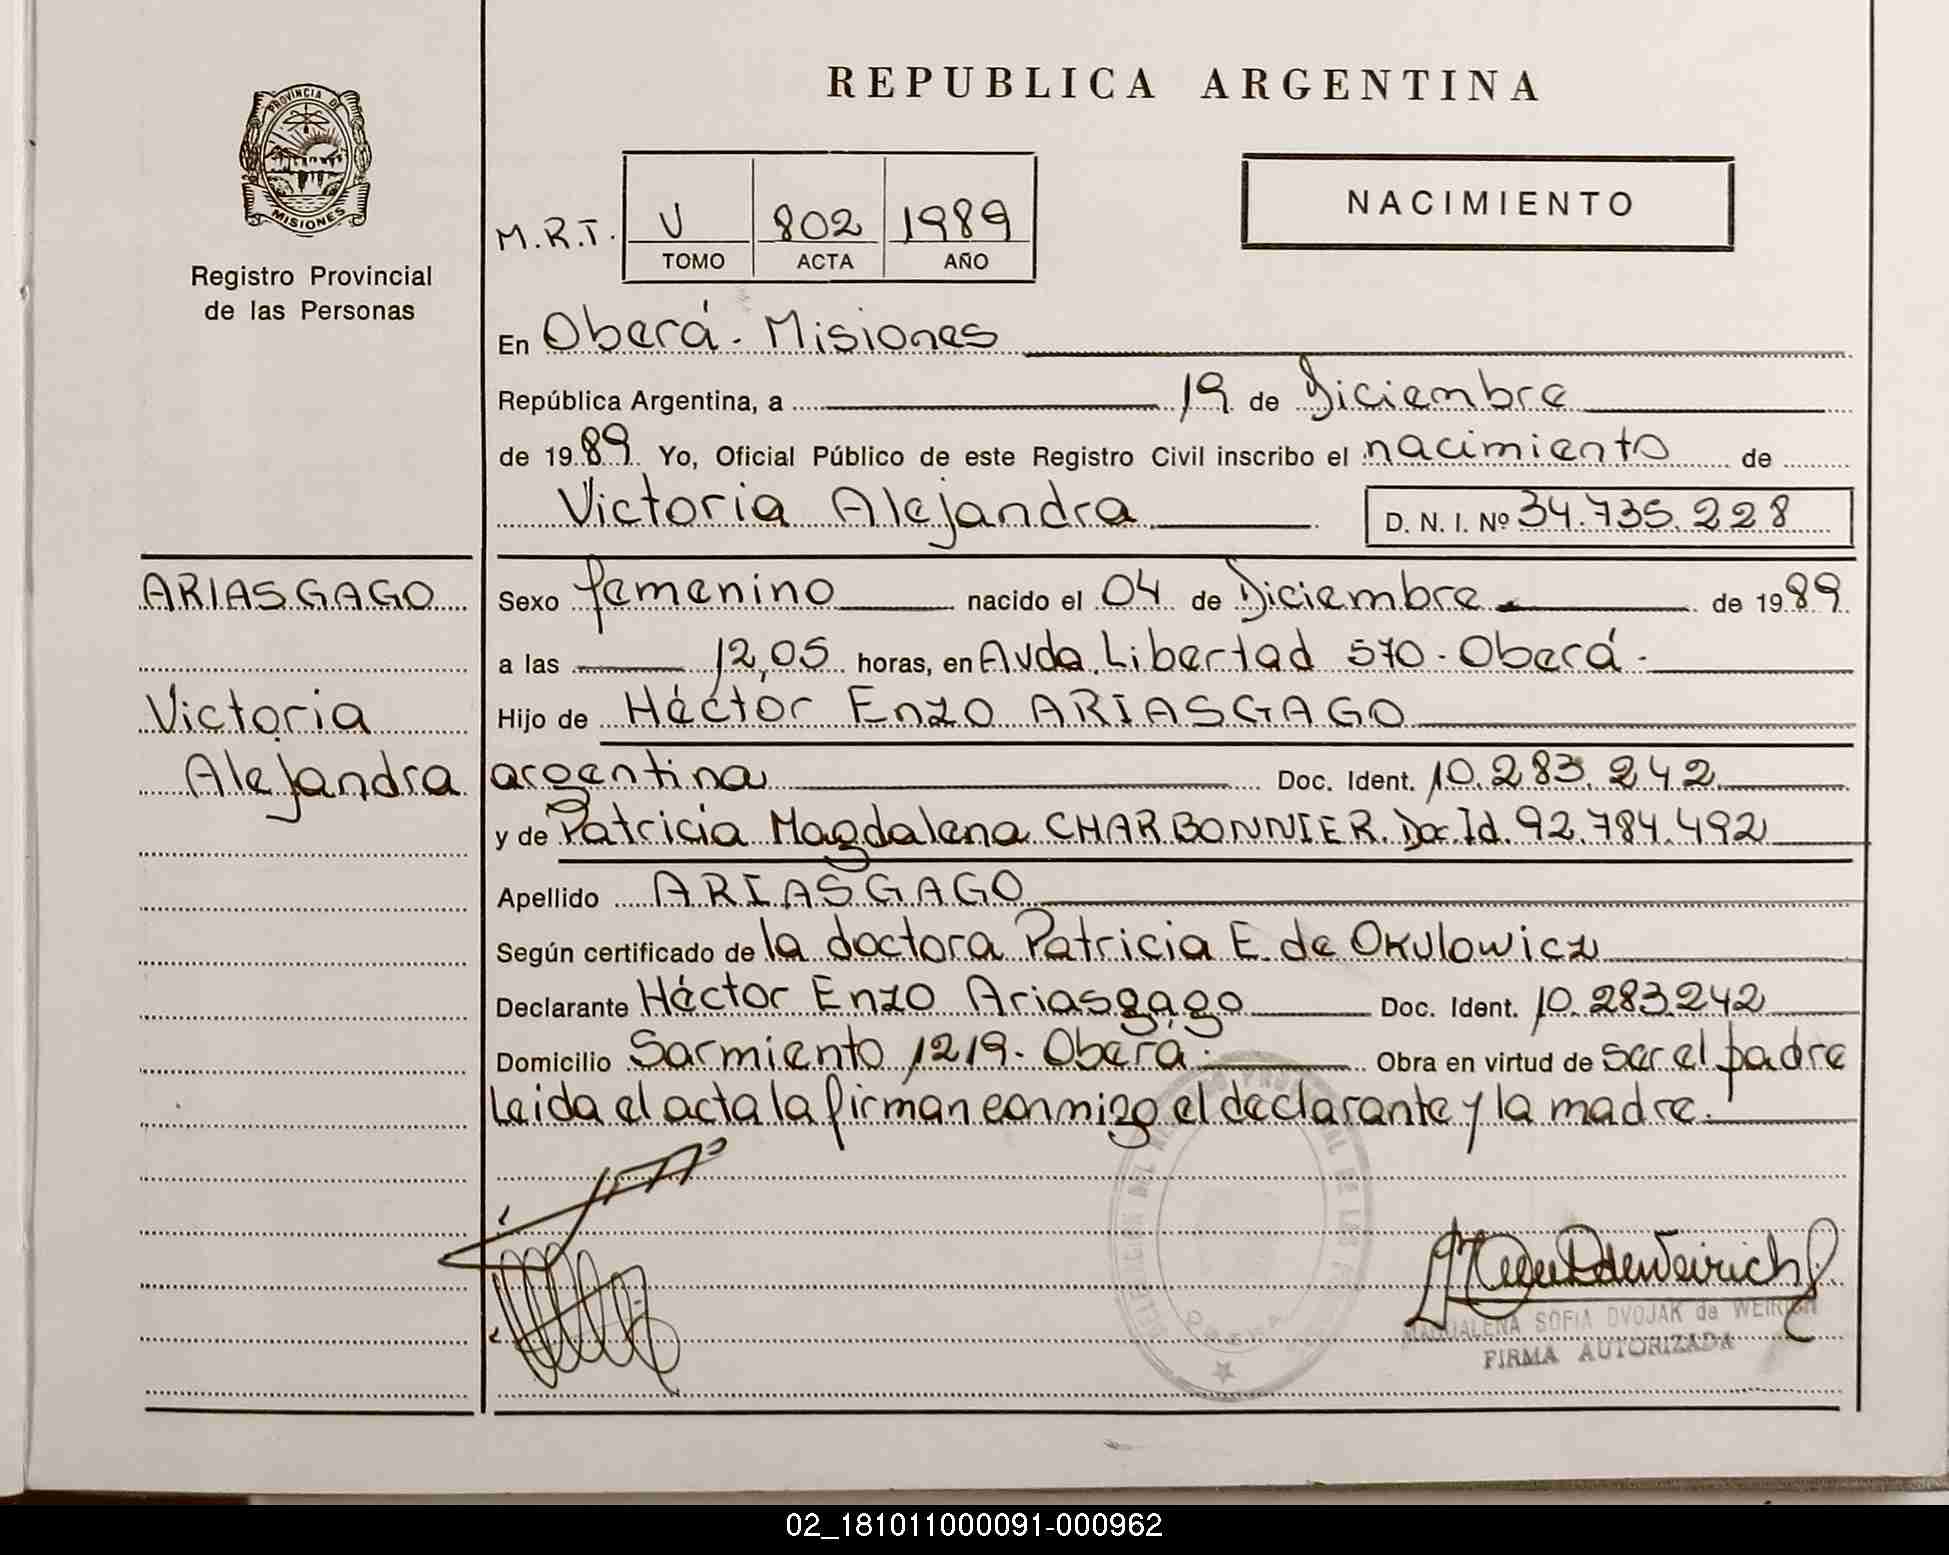 REPUBLICA ARGENTINA
PROVINCIA DE
MISIONES
Registro Provincial
de las Personas
NACIMIENTO
M.R.T. V 802 1989
TOMO ACTA AÑO
En Oberá - Misiones
República Argentina, a 19 de Diciembre
de 1989 Yo, Oficial Público de este Registro Civil inscribo el nacimiento de
Victoria Alejandra D. N. I. Nº 34.735.228
ARIASGAGO
Victoria
Alejandra
Sexo femenino nacido el 04 de Diciembre de 1989
a las 12,05 horas, en Avda. Libertad 570 - Oberá -
Hijo de Héctor Enzo ARIASGAGO
argentina Doc. Ident. 10.283.242
y de Patricia Magdalena CHARBONNIER. Doc. Id. 92.784.492
Apellido ARIASGAGO
Según certificado de la doctora Patricia E. de Okulowicz
Declarante Héctor Enzo Ariasgago Doc. Ident. 10.283.242
Domicilio Sarmiento 1219 - Oberá - Obra en virtud de ser el padre
Leida el acta la firman conmigo el declarante y la madre.
MAGDALENA SOFIA DVOJAK de WEIRICH
FIRMA AUTORIZADA
02_181011000091-000962